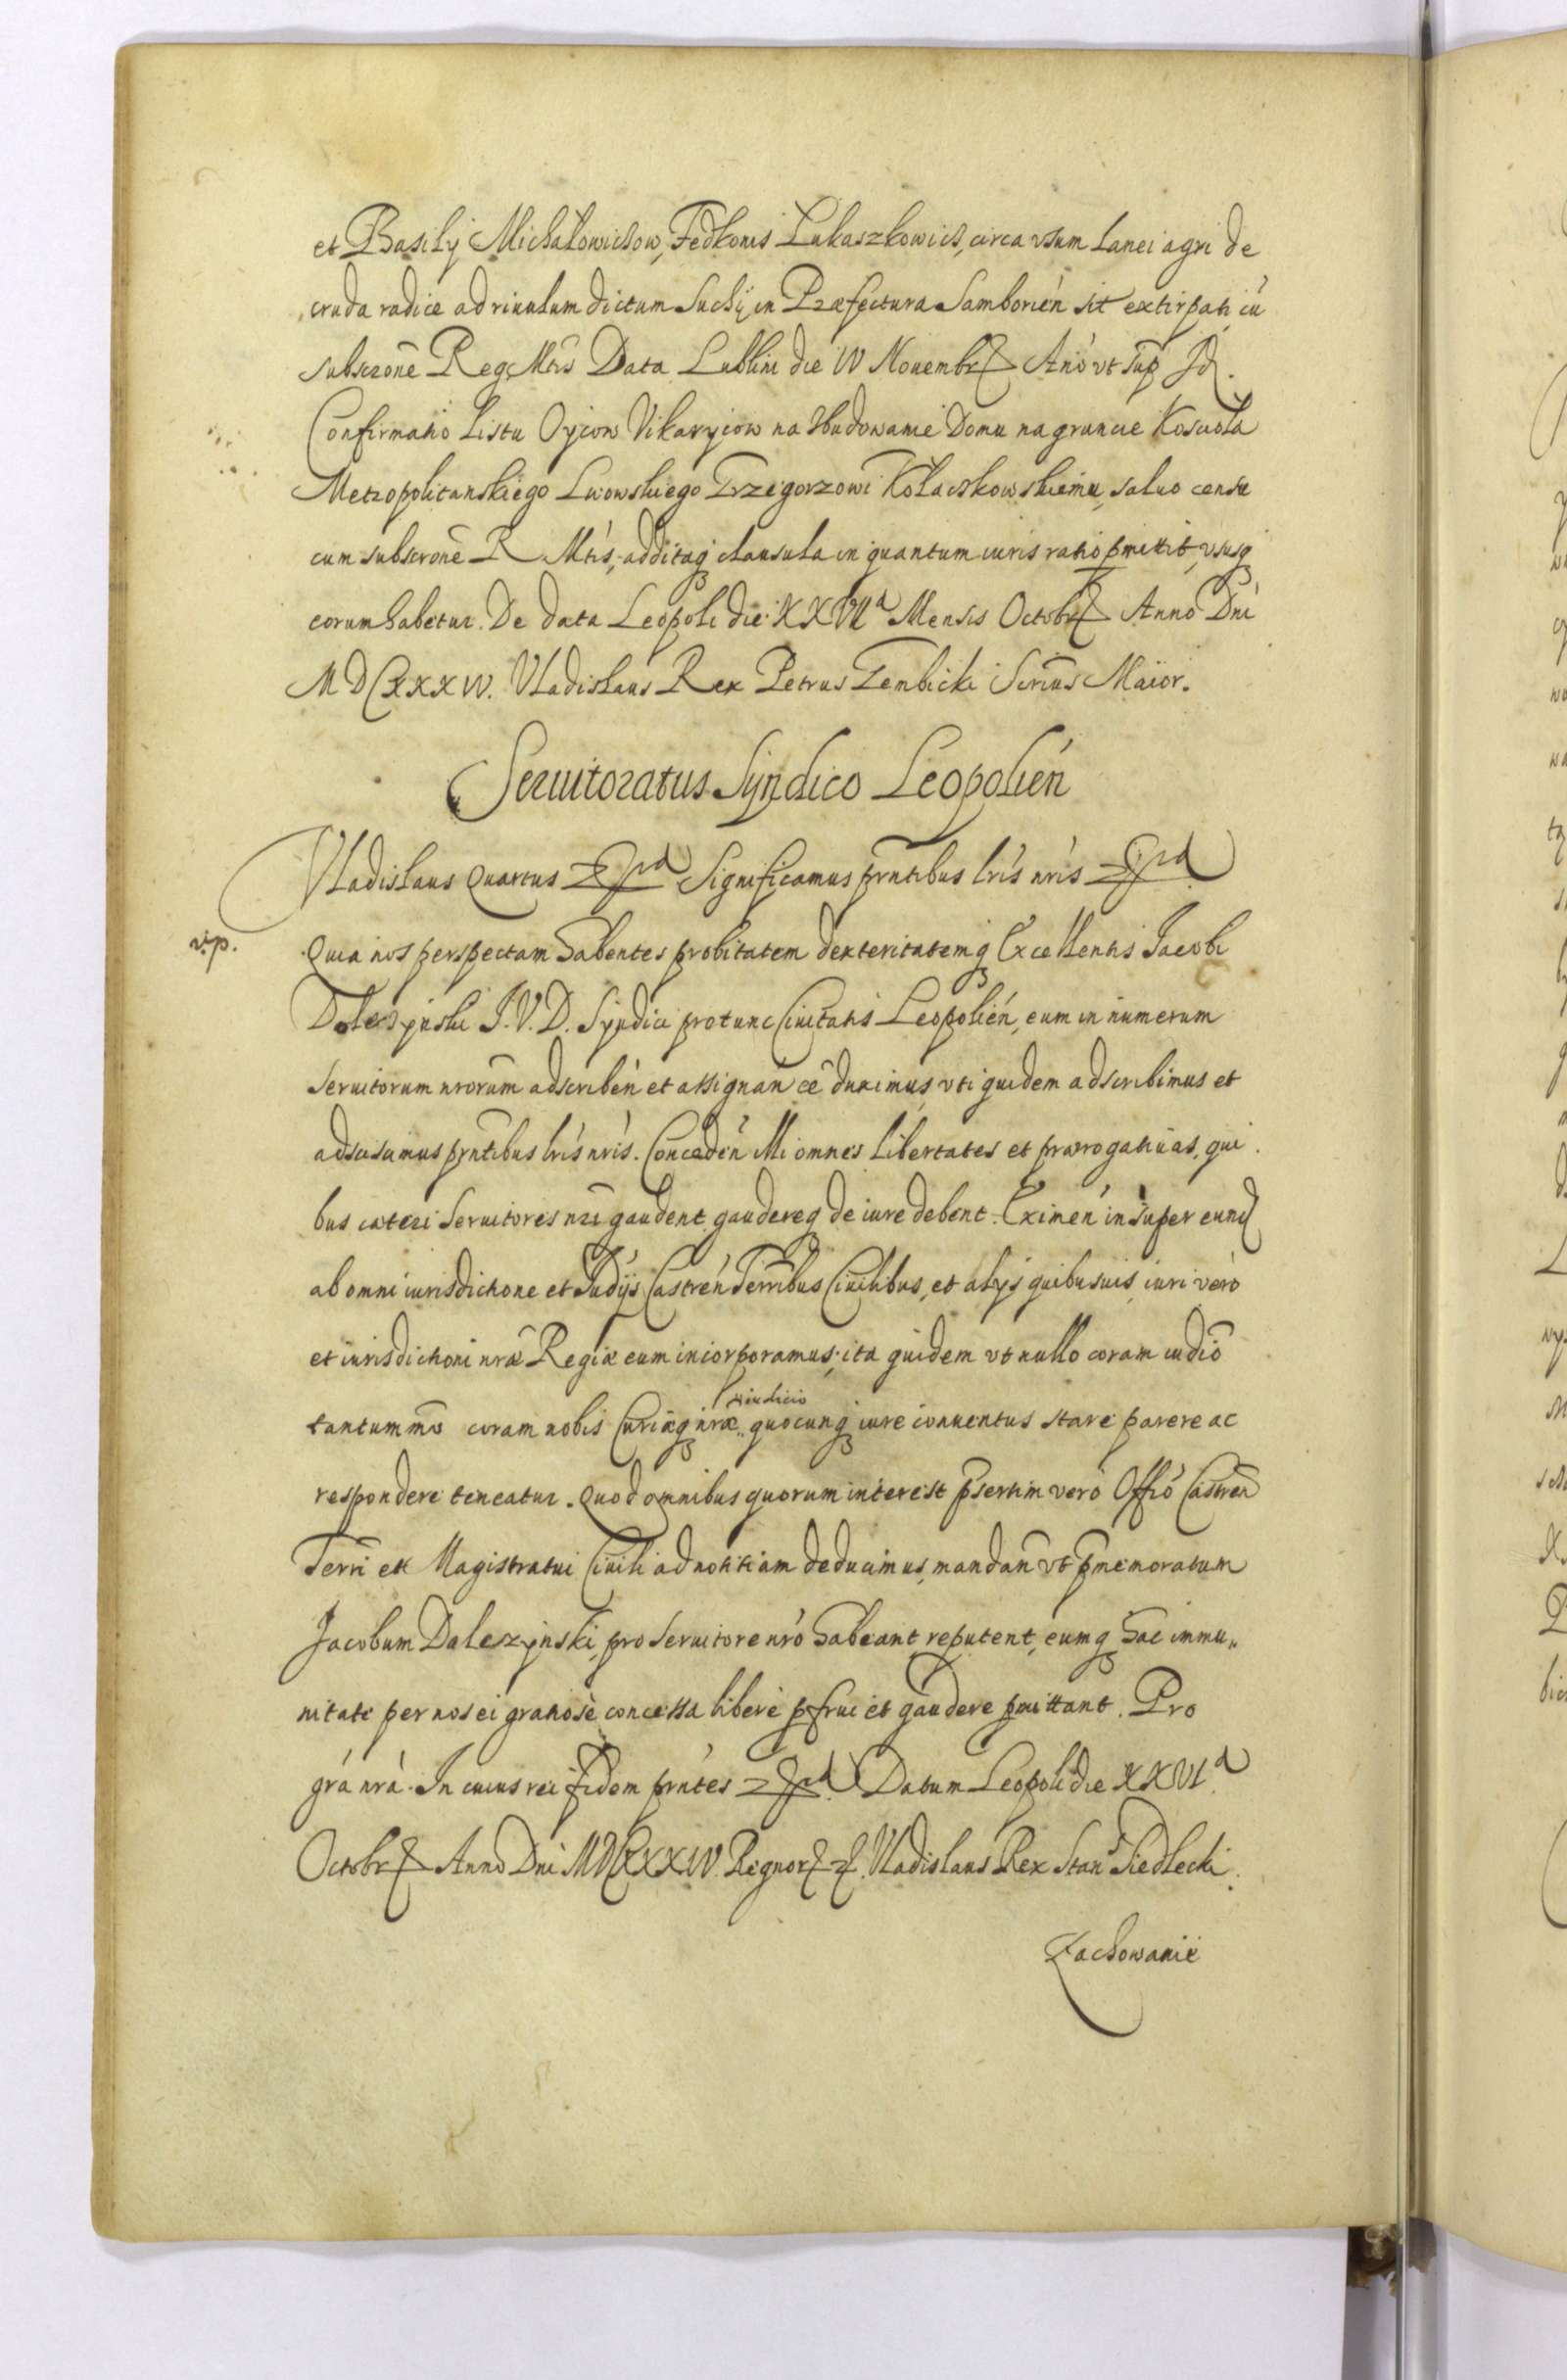 et Basilÿ Michałowiczow, Fedkonis Łukaszkowicz, circa vsum Lanei agri de
cruda radice ad riuulum dictum Suchÿ in Præfectura Samborień sit extirpati cū
subscrōne Reg Mtis Data Lublini die IV Nouembr Anō vt sup Id.
Confirmatio Listu Oÿcow Vikaryiow na zbudowanie Domu na gruncie Kosciola
Metropolitanskiego Lwowskiego Grzegorzowi Kołaczkowskiemu, saluo censu
cum subscrone R Mtis, additaq clausula in quantum iuris ratio pmittit, vsusq
eorum habetur. De data Leopoli die XXVIIa Mensis Octobr Anno Dni
MDCXXXIV. Vladislaus Rex Petrus Gembicki Scrius Maior.
Seruitoratus Syndico Leopolień
Vladislaus Quartus Significamus prntibus lris nris
v.p.
Quia nos perspectam habentes probitatem dexteritatemq Excellentis Jacobi
Daleszynski J.V.D. Syndici pro tunc Ciuitatis Leopolień, eum in numerum
Seruitorum nrorum adscribeń et assignań cē duximus, vti quidem adscribimus et
adsciscimus prntibus lris nris. Concedeń illi omnes libertates et prærogatiuas, qui
bus cæteri Seruitores nri gaudent gaudereq de iure debent. Eximeń insuper eund
ab omni iurisdictione et Iudÿs Castreń Terribus Ciuilibus, et alÿs quibusuis, iuri vero
et iurisdictioni nræ Regiæ eum incorporamus, ita quidem vt nullo coram iudiō
tantummo coram nobis Curiaq nræ quocunq iure conuentus stare parere ac
iudicio
respondere teneatur. Quod omnibus quorum interest psertim vero Offio Castreń
Terri et Magistratui Ciuili ad notitiam deducimus, mandań vt pmemoratum
Jacobum Daleszynski, pro Seruitore nro habeant, reputent, eumq hac immu„
nitate per nos ei gratiose concessa libere pfrui et gaudere pmittant. Pro
gra nra. In cuius rei fidem prntes Datum Leopoli die XXVIa
Octobr Anno Dni MDCXXXIV. Regnor Vladislaus Rex Stan Siedlecki.
Zachowanie